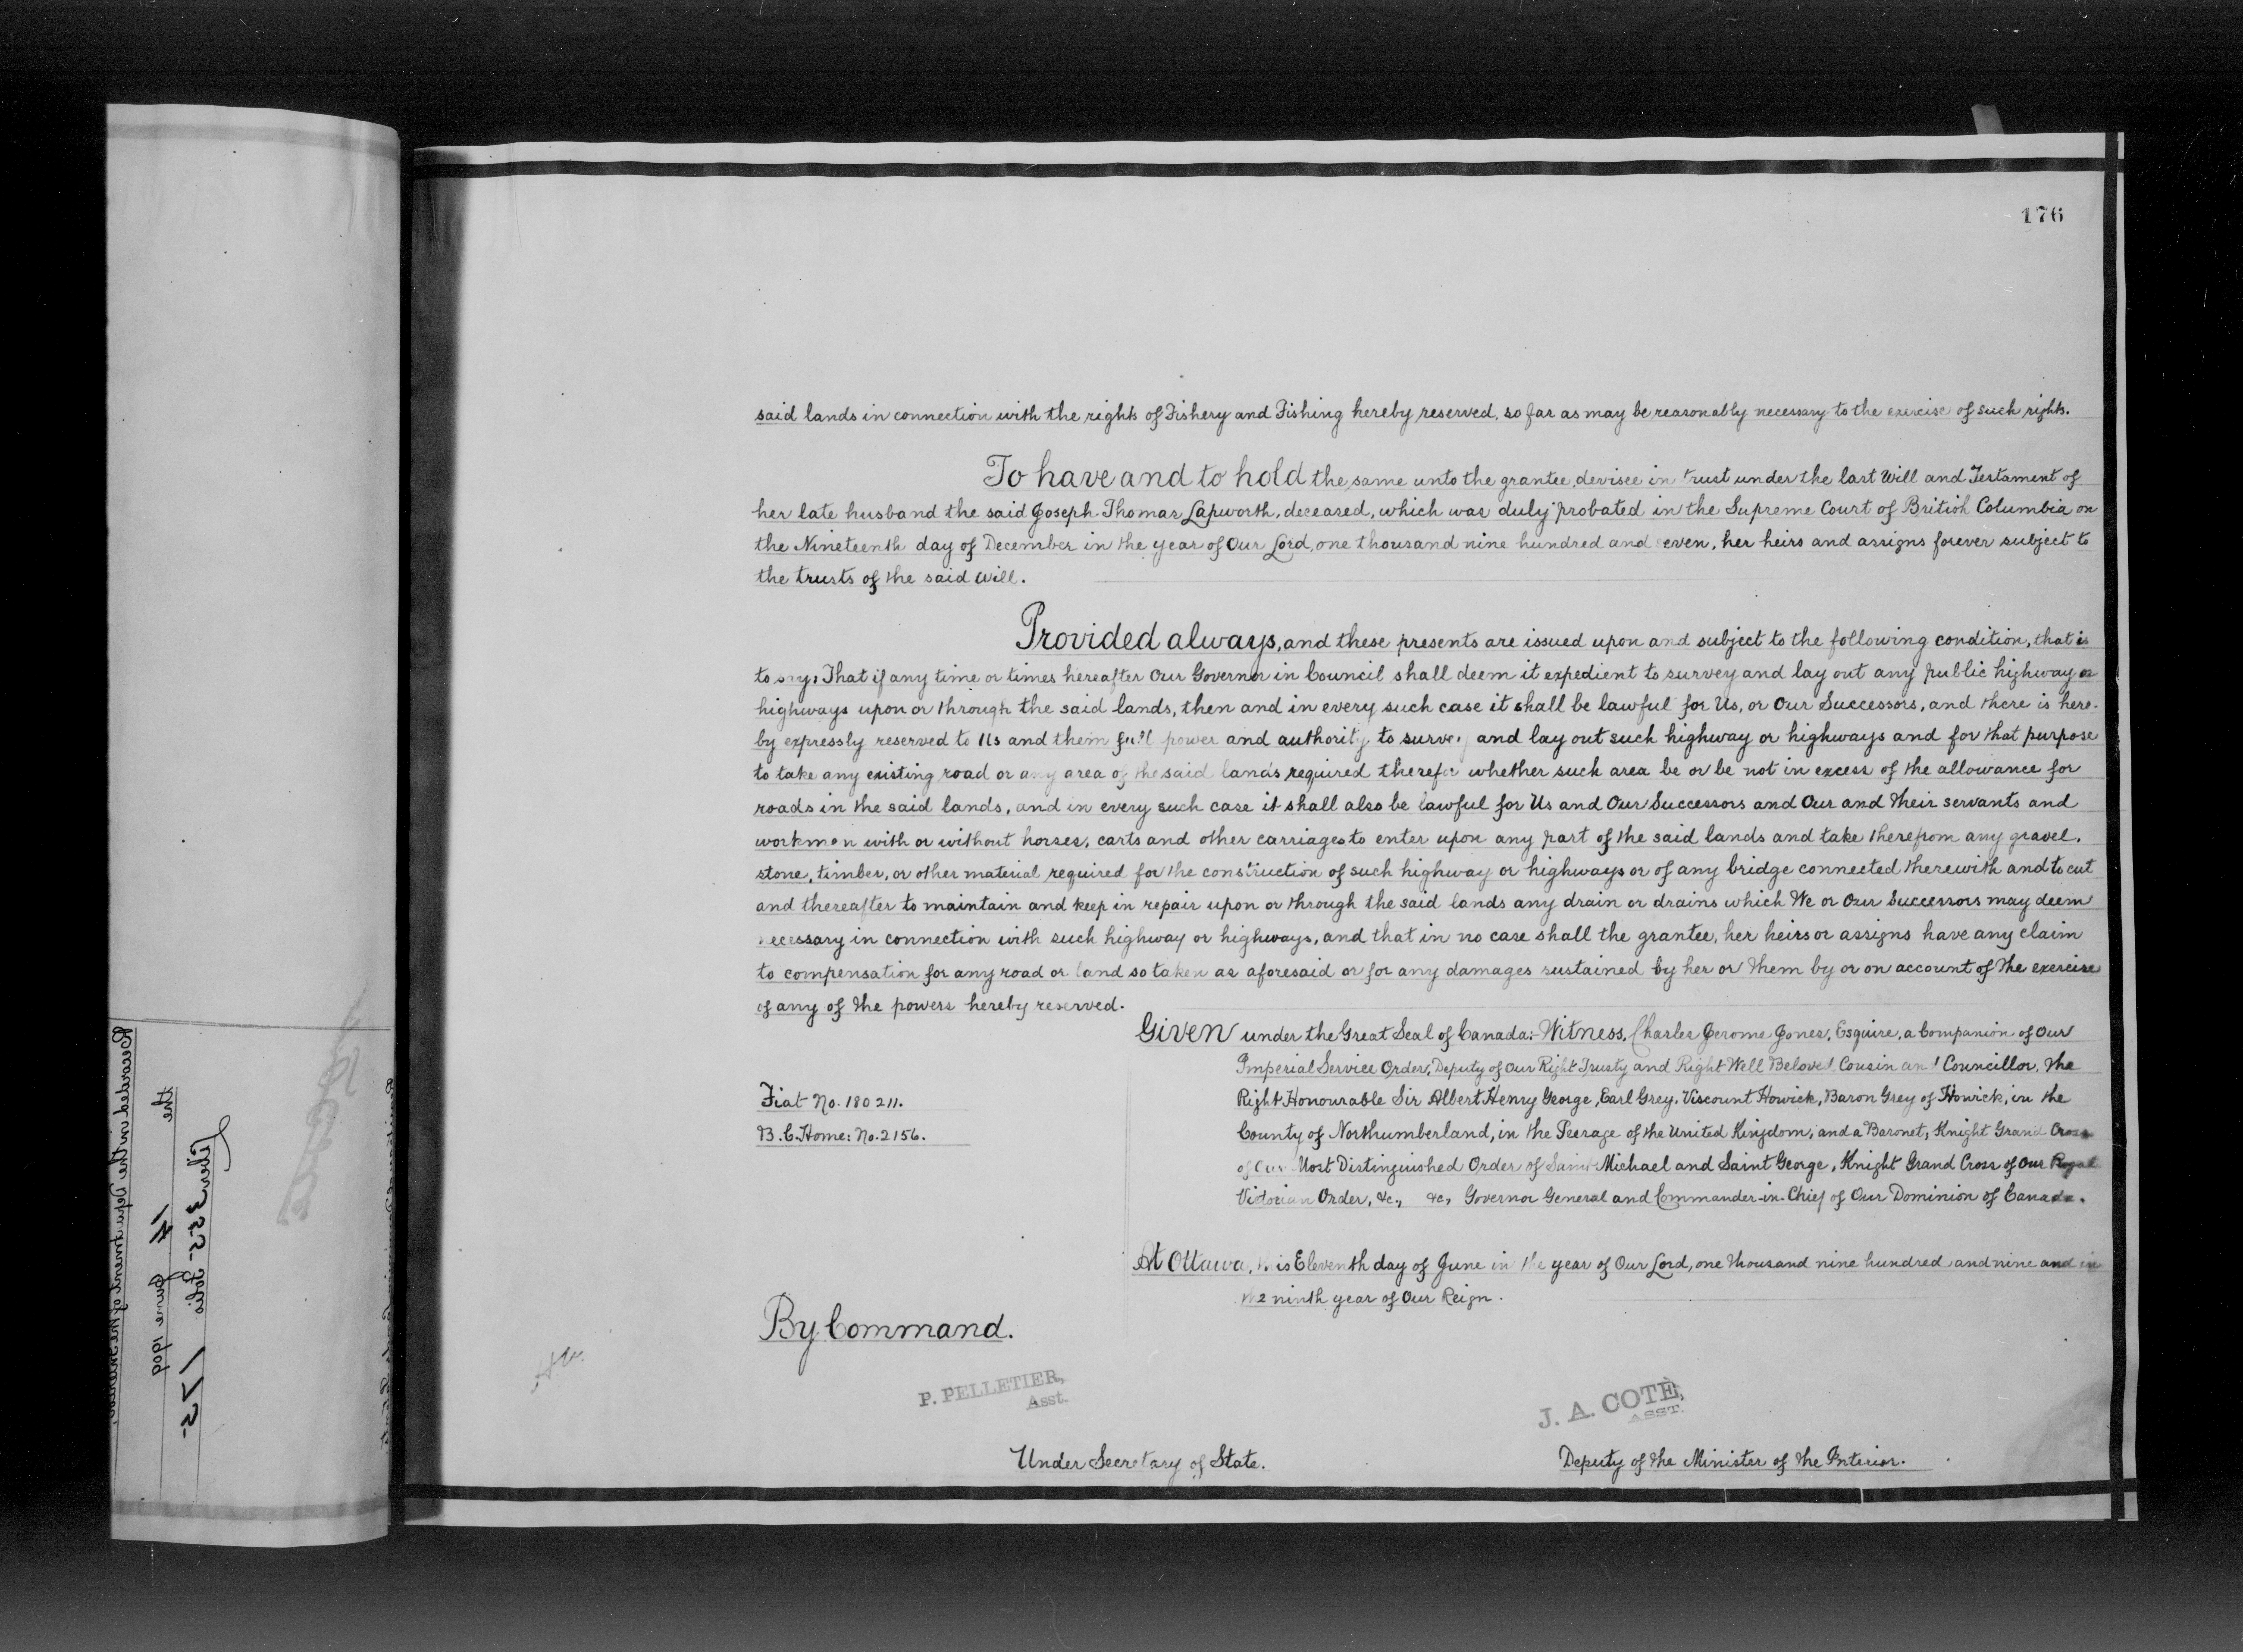 176
said lands in connection with the rights of Fishery and Fishing hereby reserved, so far as may be reasonably necessary to the exercise of such rights.
To have and to hold the same unto the grantee, devisee in trust under the last Will and Testament of
her late husband the said Joseph Thomas Lapworth, deceased, which was duly probated in the Supreme Court of British Columbia on
the Nineteenth day of December in the year of Our Lord, one thousand nine hundred and seven, her heirs and assigns forever subject to
the trusts of the said Will.
Provided always, and these presents are issued upon and subject to the following condition, that is
to say: That if any time or times hereafter Our Governor in Council shall deem it expedient to survey and lay out any public highway or
highways upon or through the said lands, then and in every such case it shall be lawful for Us, or Our Successors, and there is here-
by expressly reserved to Us and them full power and authority to survey and lay out such highway or highways and for that purpose
to take any existing road or any area of the said lands required therefor whether such area be or be not in excess of the allowance for
roads in the said lands, and in every such case it shall also be lawful for Us and Our Successors and Our and Their servants and
workmen with or without horses, carts and other carriages to enter upon any part of the said lands and take therefrom any gravel,
stone, timber, or other material required for the construction of such highway or highways or of any bridge connected therewith and to cut
and thereafter to maintain and keep in repair upon or through the said lands any drain or drains which We or Our Successors may deem
necessary in connection with such highway or highways, and that in no case shall the grantee, her heirs or assigns have any claim
to compensation for any road or land so taken as aforesaid or for any damages sustained by her or them by or on account of the exercise
of any of the powers hereby reserved.
Given under the Great Seal of Canada:- Witness, Charles Jerome Jones, Esquire, a Companion of Our
Imperial Service Order, Deputy of Our Right Trusty and Right Well Beloved Cousin and Councillor, the
Right Honourable Sir Albert Henry George, Earl Grey, Viscount Howick, Baron Grey of Howick, in the
County of Northumberland, in the Peerage of the United Kingdom, and a Baronet, Knight Grand Cross
of Our Most Distinguished Order of Saint Michael and Saint George, Knight Grand Cross of Our Royal
Victorian Order, &c., &c., Governor General and Commander-in-Chief of Our Dominion of Canada.
Fiat No. 180211.
B.C. Home: No. 2156.
At Ottawa, this Eleventh day of June in the year of Our Lord, one thousand nine hundred and nine and in
the ninth year of Our Reign.
By Command.
P. PELLETIER,
Asst.
J. A. COTÉ,
ASST.
Under Secretary of State.
Deputy of the Minister of the Interior.
Recorded in the Department of the Interior,
the 14 June 1909
Liber 355 Folio 175